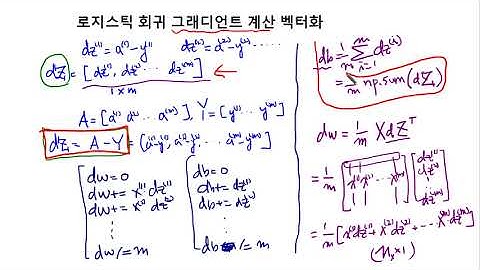 로지스틱 회귀 그래디언트 계산 벡터화
dz⁽¹⁾ = a⁽¹⁾ - y⁽¹⁾ dz⁽²⁾ = a⁽²⁾ - y⁽²⁾ .....
dZ = [dz⁽¹⁾, dz⁽²⁾ ... dz⁽ᵐ⁾] ←
1×m
A = [a⁽¹⁾ a⁽²⁾ ... a⁽ᵐ⁾], Y = [y⁽¹⁾ ... y⁽ᵐ⁾]
dZ = A - Y = [a⁽¹⁾-y⁽¹⁾, a⁽²⁾-y⁽²⁾ ... a⁽ᵐ⁾-y⁽ᵐ⁾]
dw = 0
dw += x⁽¹⁾ dz⁽¹⁾
dw += x⁽²⁾ dz⁽²⁾
⋮
dw /= m
db = 0
db += dz⁽¹⁾
db += dz⁽²⁾
⋮
db /= m
db = 1/m Σ dz⁽ⁱ⁾ i=1 m
= 1/m np.sum(dZ)
dw = 1/m X dZᵀ
= 1/m [x⁽¹⁾ x⁽²⁾ ... x⁽ᵐ⁾] [dz⁽¹⁾ dz⁽²⁾ ⋮ dz⁽ᵐ⁾]
= 1/m [x⁽¹⁾dz⁽¹⁾ + x⁽²⁾dz⁽²⁾ + ... x⁽ᵐ⁾dz⁽ᵐ⁾]
(nₓ×1)